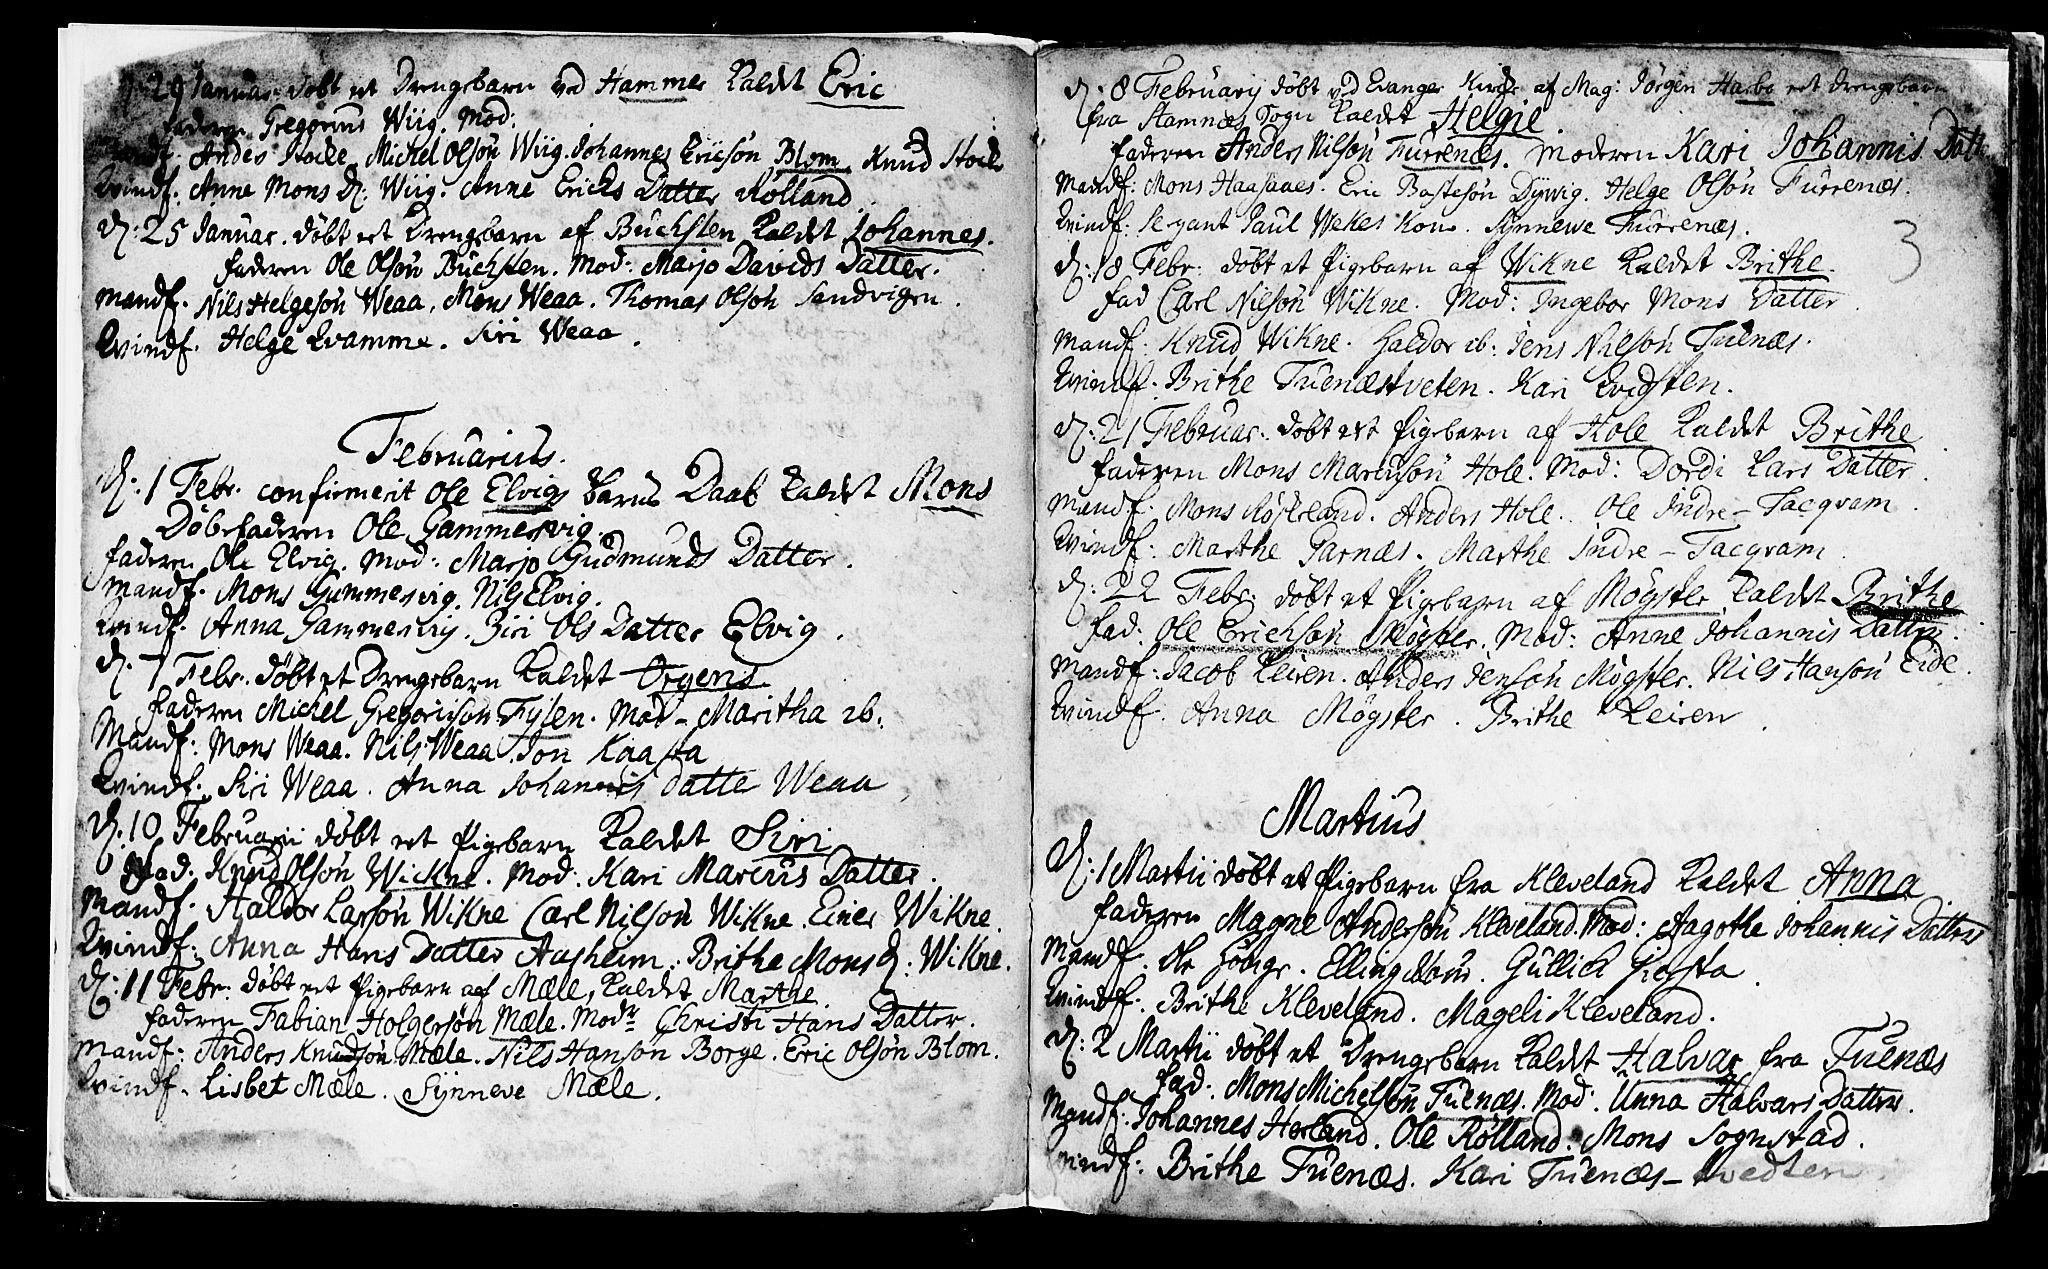 29 Januar. døbt et Drengebarn ved Hammer kaldet Eric
faderen Gregorius Wiig. Mod:
Mandf. Andes Michel Olsøn Wiig. Johannes Ericsøn Blom Knud
Kvindf. Anne Mons D: Wiig. Anne Ericks Datter Rolland.
D: 25 Januar. døbt et Drengebarn af Buchsten kaldet Johannes.
faderen Ole Olsøn Buchsten. Mod: Marjo Davids Datter.
Mandf. Nils Helgesøn Weaa, Mons Weaa. Thomas Olsøn Sandvigen.
Kvindf. Helge Kvamme. Siri Weaa.
Februarius.
D: 1 Febr. confirmerit Ole Elvigs Barns Daab kaldet Mons
Døbefaderen Ole Gammersvig.
faderen Ole Elvig. Mod: Marjo Gudmunds Datter.
Mandf. Mons Gammersvig. Nils Elvig.
Kvindf. Anna Gammersvig. Siri Ols Datter Elvig.
D. 7 Febr. døbt et Drengebarn kaldet Ørgens
faderen Michel Gregoriison Fylen. Mod - Maritha ib.
Mandf: Mons Weaa. Nils Weaa. Jon Kaasa
Kvindf. Siri Weaa. Anna Johannis Datte Weaa
D: 10 Februarii døbt eet Pigebarn kaldet Siri
Fad: Knud Olsøn Wickne. Mod: Kari Marcus Datter.
Mandf. Haldor Larsøn Wikne Carl Nilsøn Wikne. Einer Wikne.
Kvindf: Anna Hans Datter Aasheim. Brithe Mons D: Wikne.
D: 11 Febr. døbt eet Pigebarn af Mæle, kaldet Marthe.
faderen Fabian Holgersøn Mæle. Modr Christi Hans Datter.
Mandf: Anders Knudsøn Mæle. Nils Hansøn Borge. Eric Olsøn Blom.
Kvindf. Lisbet Mæle. Synneve Mæle.
D: 8 Februarij døbt ved Evanger Kirche af Mag: Jørgen Harbo eet Drengebarn
fra Stamnæs Sogn kaldet Helgie.
faderen Anders Nilsøn Furrenæs. Moderen Kari Johannis Datt
Mandf: Mons Eric Bastesøn Dyvig. Helge Olsøn Furrenæs
Kvindf: Sergant Paul Wekes Kone. Synnewe Furrenæs.
3
D: 18 Febr: døbt et Pigebarn af Wikne kaldet Brithe.
fad Carl Nilsøn Wikne. Mod: Ingebor Mons Datter.
Mandf. Knud Wikne. Haldor ib: Jens Nilsøn Fuenæs.
Kvindf. Brithe Fuenæstveten. Kari
D: 21 Februar. døbt eet Pigebarn af Hole kaldet Brithe
faderen Mons Marcusøn Hole. Mod: Dordi Lars Datter.
Mandf. Mons Anders Hole. Ole Indre-Tacqvam.
Kvindf: Marthe Marthe Indre-Tacqvam.
D: 22 Febr. døbt et Pigebarn af Møgster kaldet Brithe
fad: Ole Erichsøn Møgster. Mod: Anne Johannis Datter.
Mandf: Jacob Leiren. Anders Jensøn Møgster. Nils Hansøn Eide.
Kvindf. Anna Møgster. Brithe Leiren.
Martius
D: 1 Martii døbt et Pigebarn fra Kleveland kaldet Anna
faderen Magne Andersøn Kleveland. Mod: Aagothe Johannis Datter
Mandf. Ole Elling Gullick
Kvindf. Brithe Kleveland. Mageli Kleveland.
D: 2 Martii døbt et Drengebarn kaldet Halvar fra Fuenæs
fad. Mons Michelsøn Fuenæs. Mod: Unna Halvars Datter.
Mandf: Johannes Herland. Ole Rolland. Mons Sognstad.
Kvindf: Brithe Fuenæs. Kari Fuenæs-tvedten.